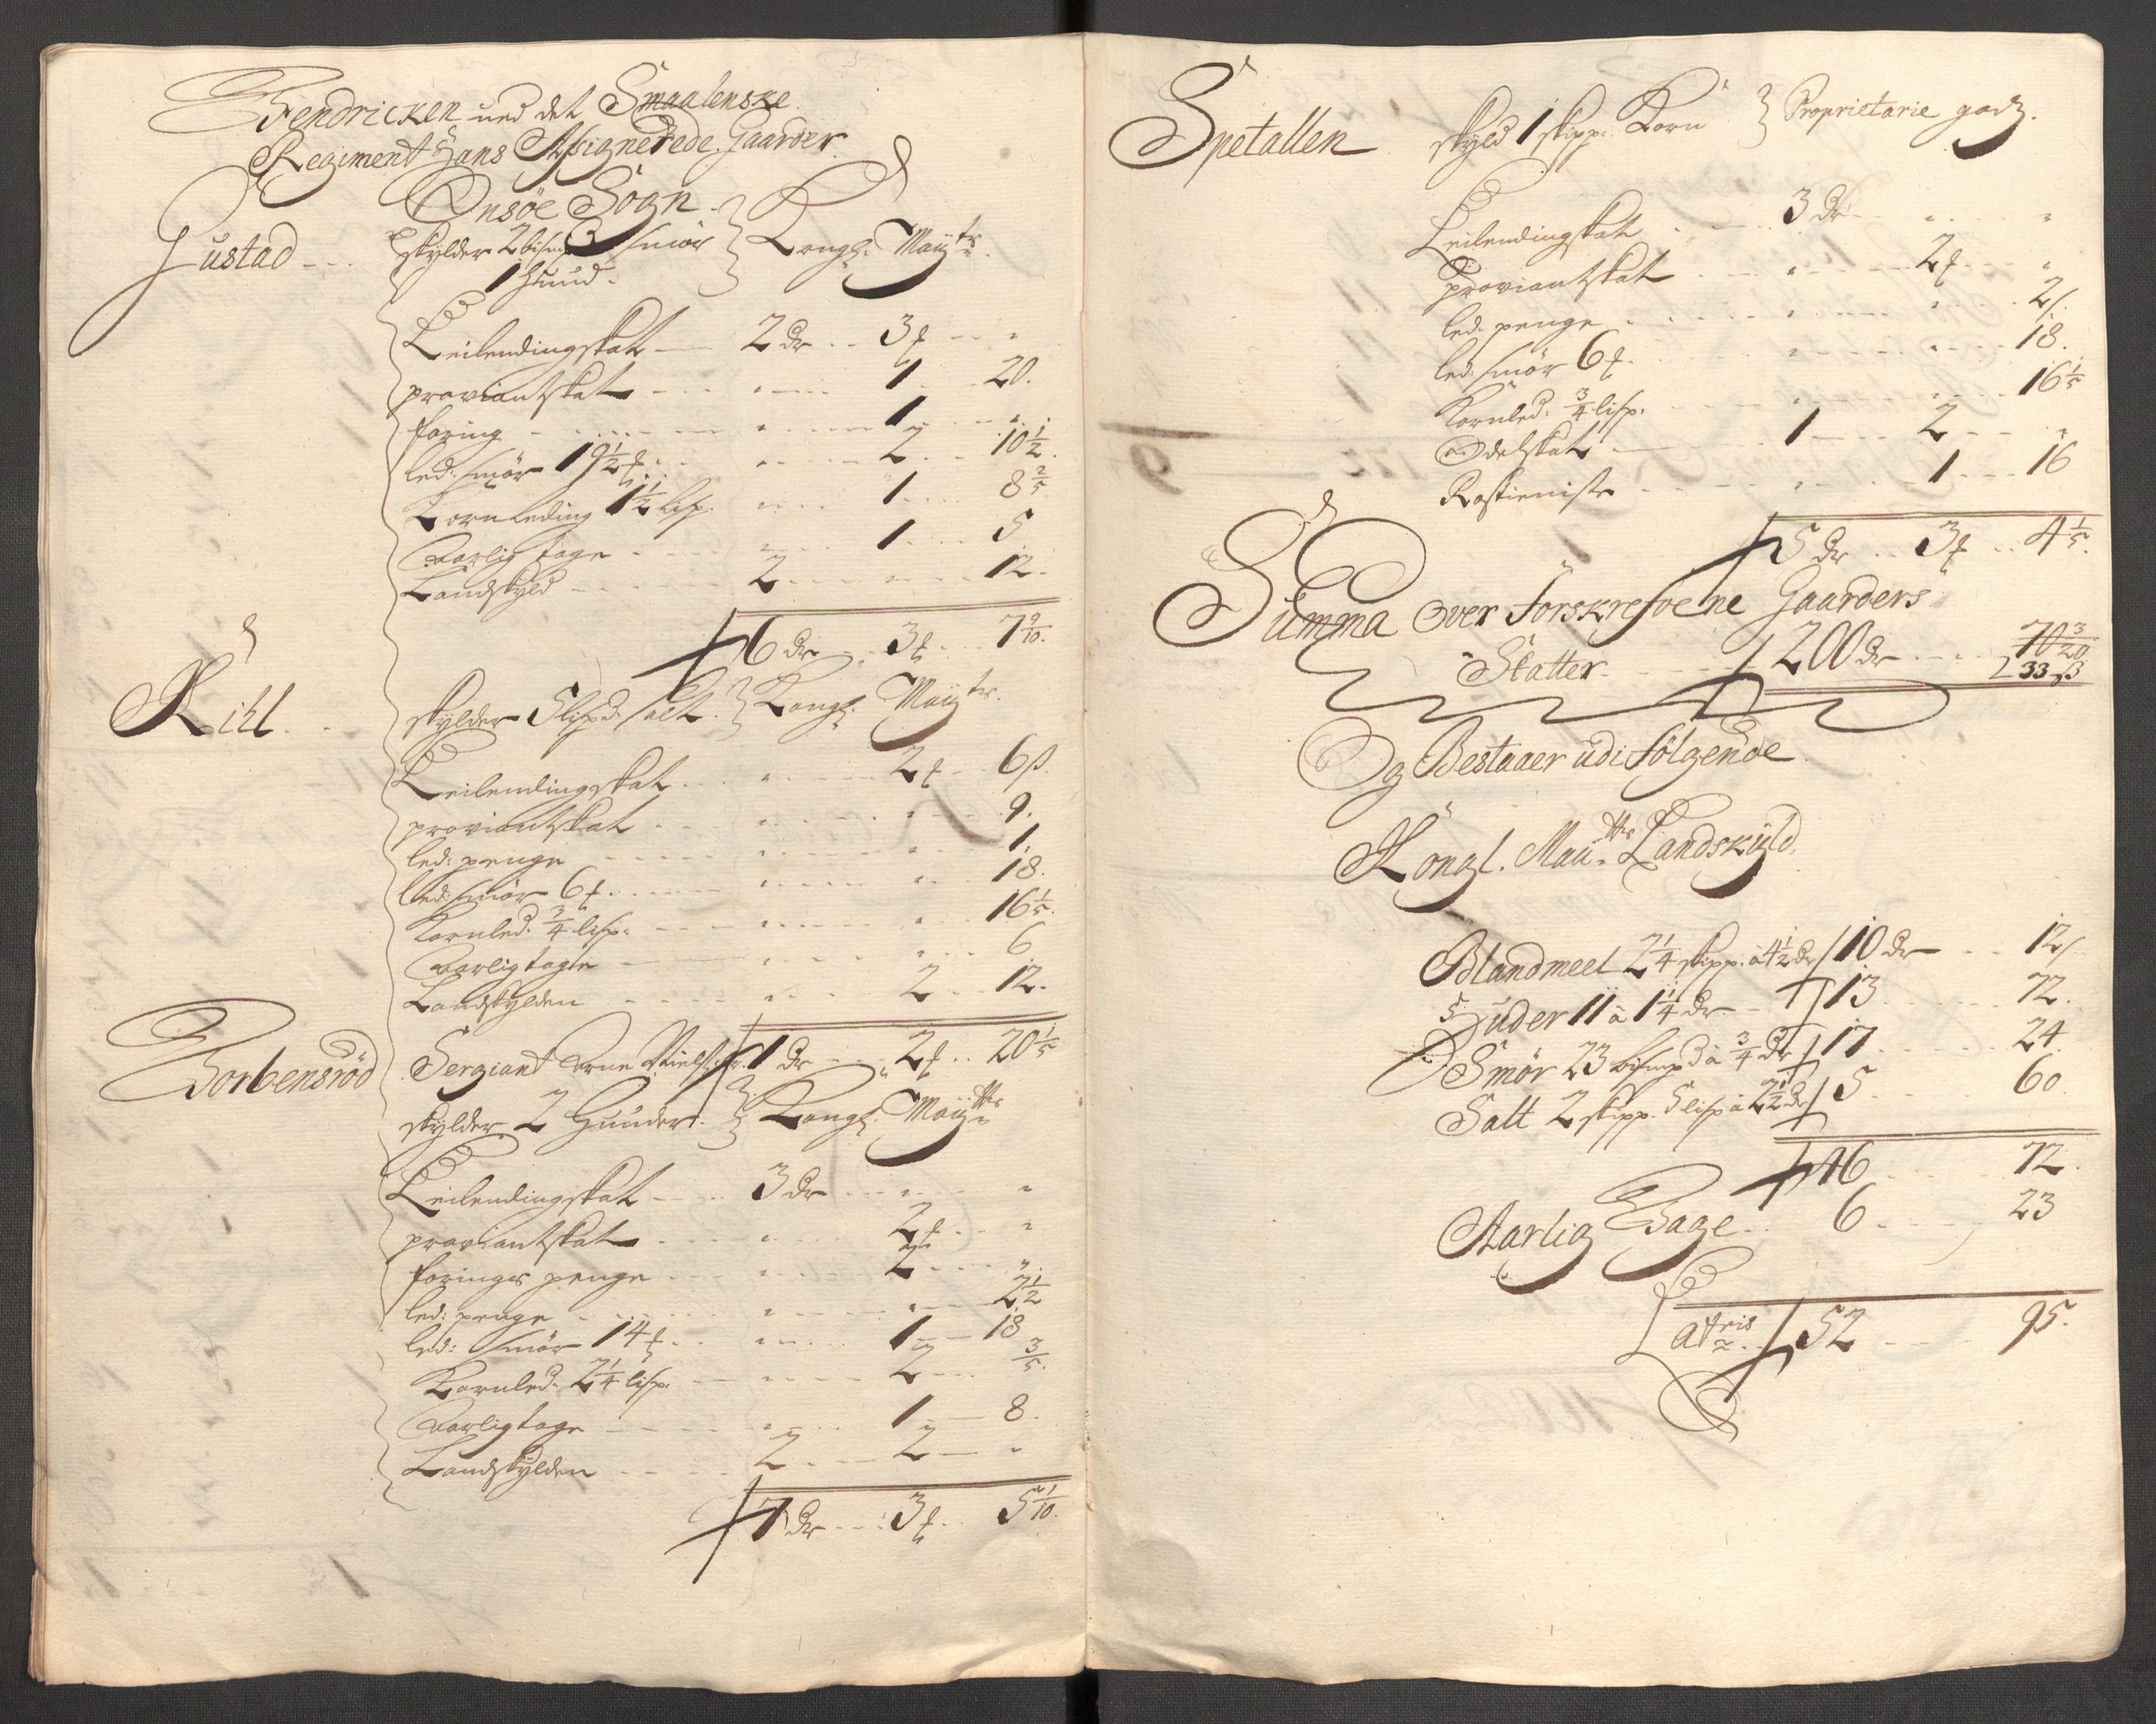 Fendricken ved det Smaalenske
Regiment Hans Assignerede Gaarder
Onsöe Sogn
Gustad skylder 2 bismp smör Kongl. Maÿts
1 Huud
Leilendingskat 2 dr 3 f "
proviantskat " 1 20.
foring " 1 "
led: smör 19½ f " 2 10½.
Kornleding 1½ lisp. " 1 8 2/5
Aarlig tage " 1 5
Landskyld 2 " 12.
6 dr 3 f 7 9/10.
Kihl skylder 5 lispd: salt. Kongl. Maÿts.
Leilendingskat " 2 f 6 ß.
proviantskat " " 9.
led: penge " " 1.
led: smör 6 f. " " 18.
Kornled: ¾ lisp: " " 16 1/5.
Aarlig tage " " 6
Landskylden " 2 12.
Sergiant Arne 1 dr 2 f 20 1/5
Torbensröd skylder 2 Huuder. Kongl. Maÿtts
Leilendingskat 3 dr " "
proviantskat " 2 f "
forings penge " 2 "
led: penge " " 2½
led: smör 14 f " 1 18
Kornled: 2¼ lisp. " 2 3/5.
Aarlig tage " 1 8.
Landskylden 2 2 "
7 dr 3 f 5 1/10.
Spetallen skyld 1 skipp: Korn Proprietarie godz.
Leilendingskat 3 dr " "
proviantskat " 2 f "
led: penge " " 2 ß
led: smör 6 f. " " 18.
Kornled: ¾ lisp. " " 16 1/5
Odelskat 1 2 "
Rostieniste " 1 16
5 dr 3 f 4 1/5.
Summa over forskrefvene Gaarders
Skatter 200 dr 70 3/20
33 ß
Og Bestaaer udi følgende
Kongl. Maÿtts Landskÿld.
Blandmeel 2¼ skipp. a 4½ dr 10 dr 12 ß
Huder 11 a 1¼ dr 13 72.
Smör 23 bismpd a ¾ dr 17 24.
Salt 2 skipp. 5 lisp a 2½ dr 5 60.
46 72.
Aarlig Tage 6 23
Lateris 52 95.